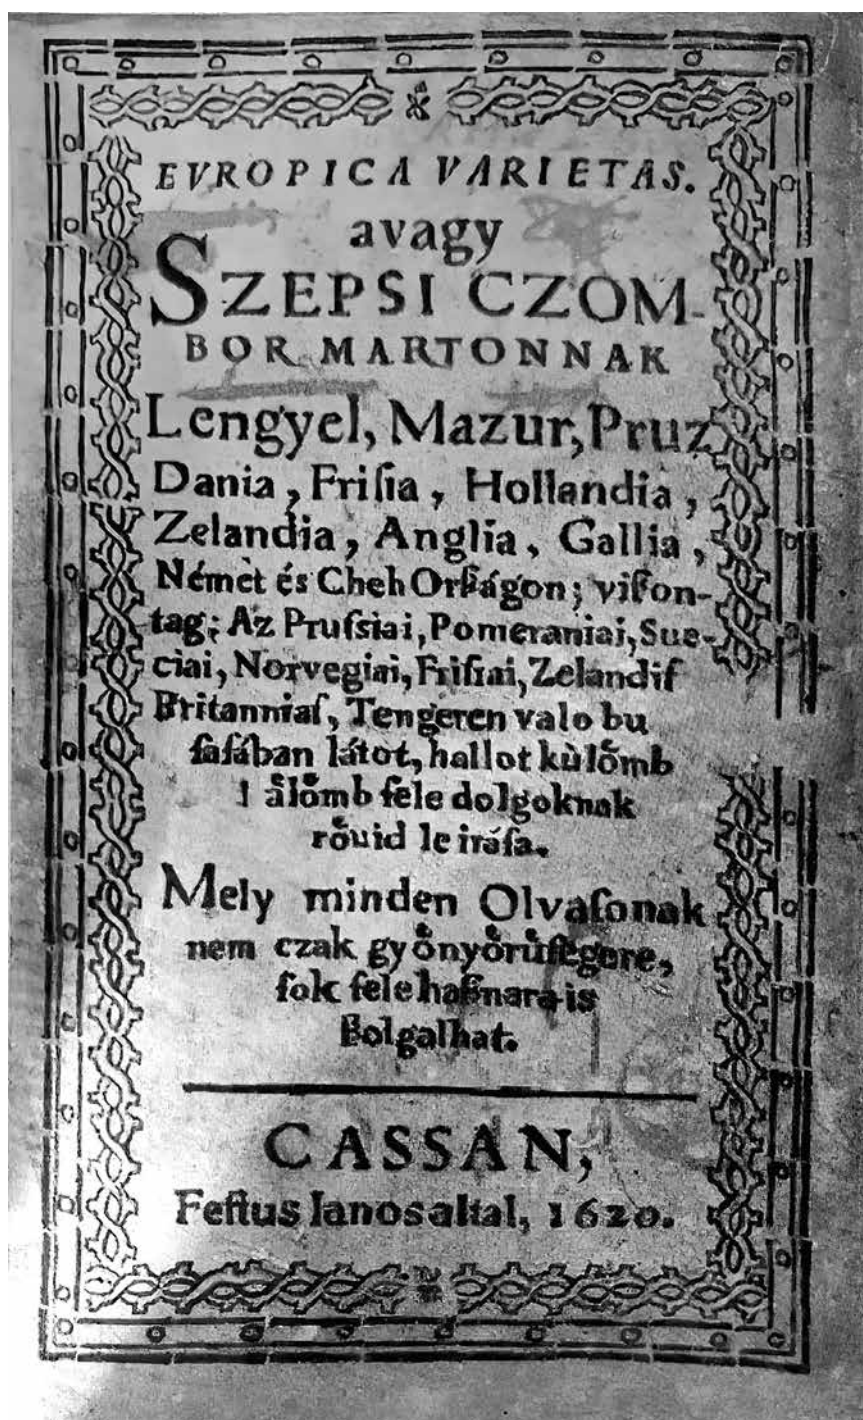 EVROPICA VARIETAS.
avagy
SZEPSI CZOM-
BOR MARTONNAK
Lengyel, Mazur, Pruz
Dania, Friſia, Hollandia,
Zelandia, Anglia, Gallia,
Német és Cheh Orßágon; vißon-
tag; Az Pruſsiai, Pomeraniai, Sue-
ciai, Norvegiai, Friſiai, Zelandiſ
Britanniaſ, Tengeren valo bu
ſaſában látot, hallot kùlo̊mb
ålo̊mb fele dolgoknak
ro̊uid le iráſa.
Mely minden Olvaſonak
nem czak gyo̊nyo̊ru̇ſegere,
ſok fele haßnara is
ßolgalhat.
CASSAN,
Feſtus Ianos altal, 1620.